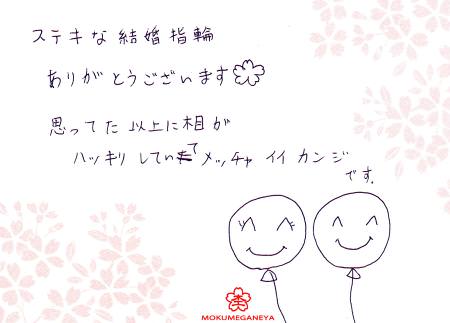 ステキな結婚指輪
ありがとうございます
思ってた以上に相が
ハッキリしていて メッチャ イイ カンジ
です.
MOKUMEGANEYA